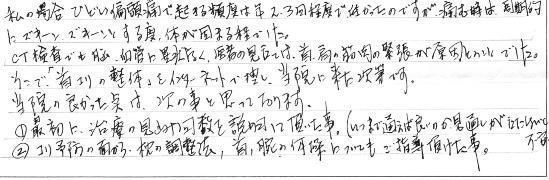 私の場合ひどい偏頭痛で起きる頻度は年2.3回程度で
にズキーンズキーンとする度、体が固まる程でした。
CT検査でも脳、血管に異状なく、医者の見立では、首、肩の筋肉の緊張が原因ということでした。
そこで「首コリの整体」をインターネットで探し、当院に来た次第です。
当院の良かった点は、次の事と思っております。
①最初に、治療の見込み回数を説明して頂いた事。(いつまで通えば良いか見通しが
②コリ予防の面から、枕の調整法、首、腕の体操についてもご指導頂けた事。